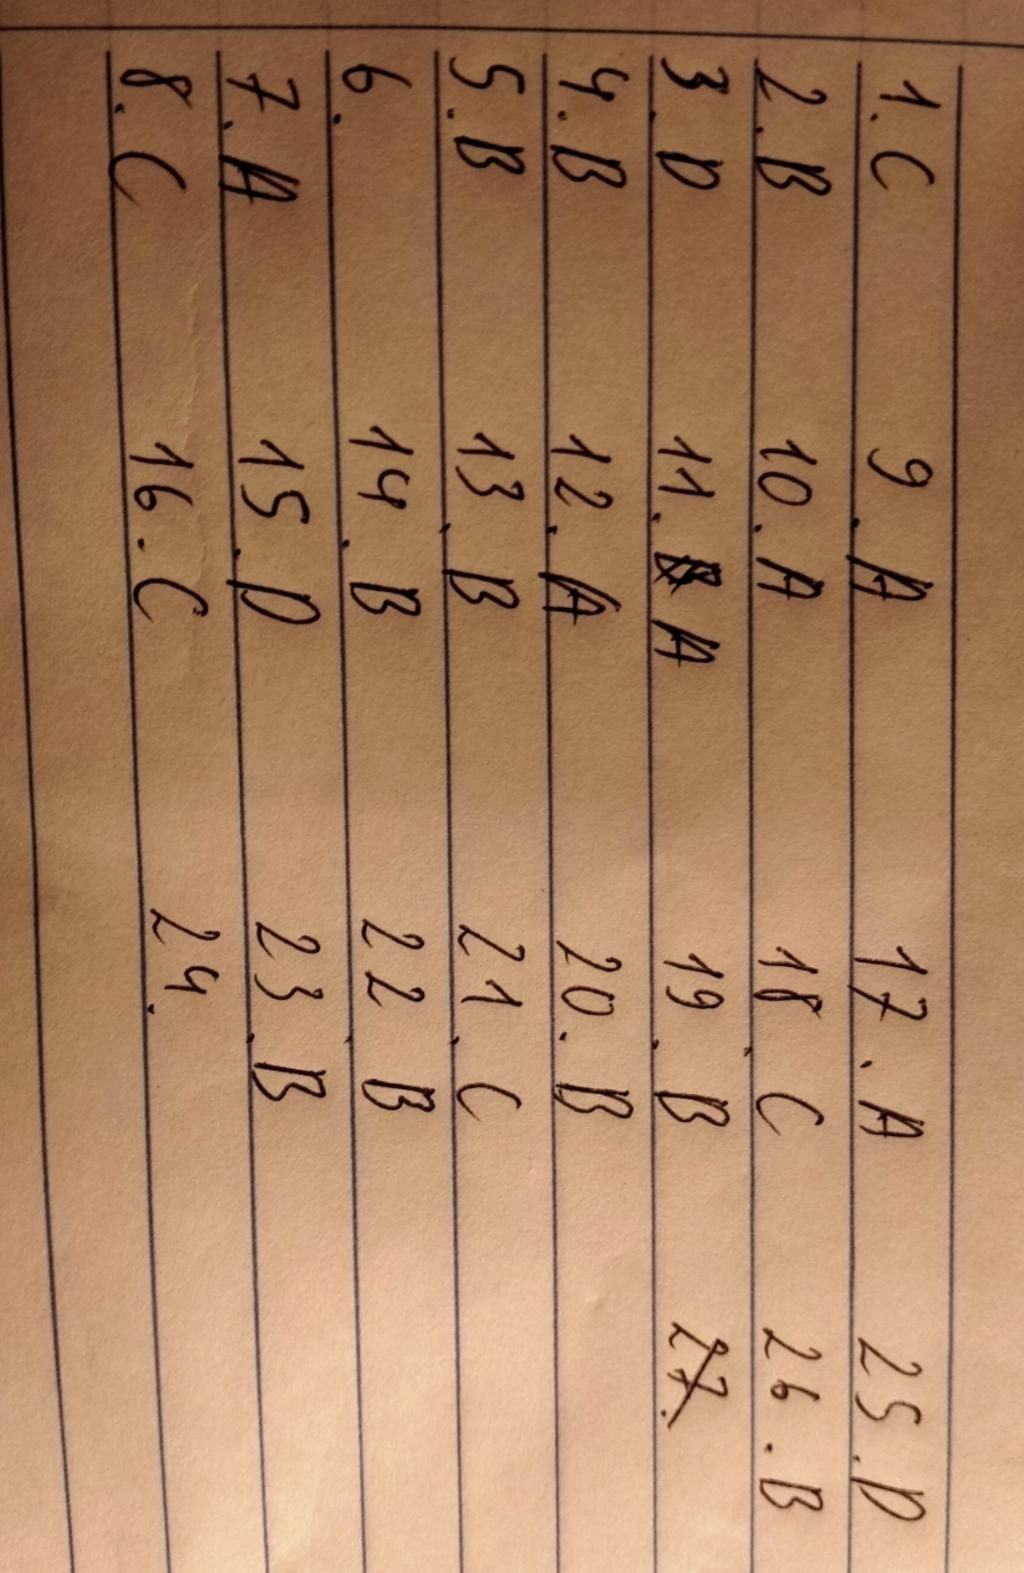 1. C 9. A 17. A 25. D
2. B 10. A 18. C 26. B
3. D 11. B A 19. B 27.
4. B 12. A 20. B
5. B 13. B 21. C
6. 14. B 22. B
7. A 15. D 23. B
8. C 16. C 24.